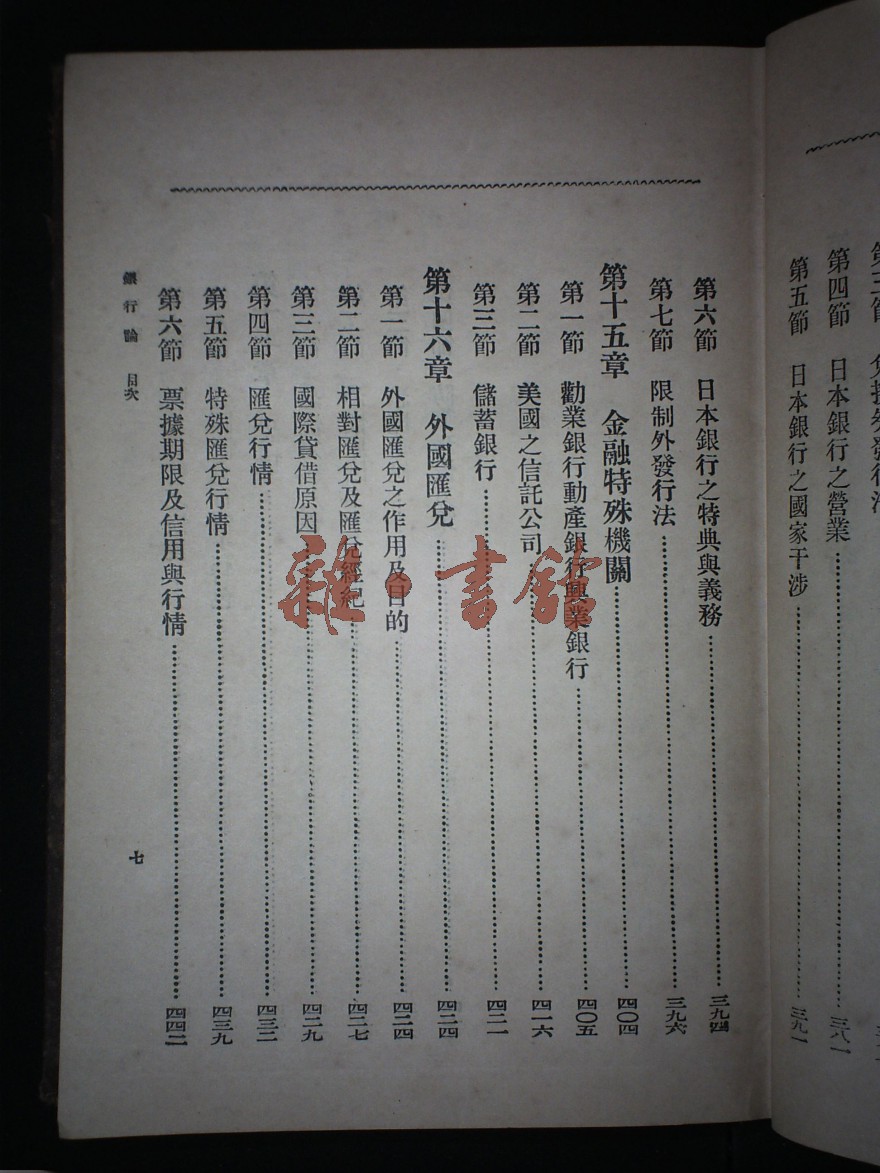 第四節　日本銀行之營業……三八一
第五節　日本銀行之國家干涉……三九一
第六節　日本銀行之特典與義務……三九四
第七節　限制外發行法……三九六
第十五章　金融特殊機關……四〇四
第一節　勸業銀行動產銀行興業銀行……四〇五
第二節　美國之信託公司……四一六
第三節　儲蓄銀行……四二一
第十六章　外國匯兌……四二四
第一節　外國匯兌之作用及目的……四二四
第二節　相對匯兌及匯兌經紀……四二七
第三節　國際貸借原因……四二九
第四節　匯兌行情……四三二
第五節　特殊匯兌行情……四三九
第六節　票據期限及信用與行情……四四二
銀行論　目次
七
雜·書館